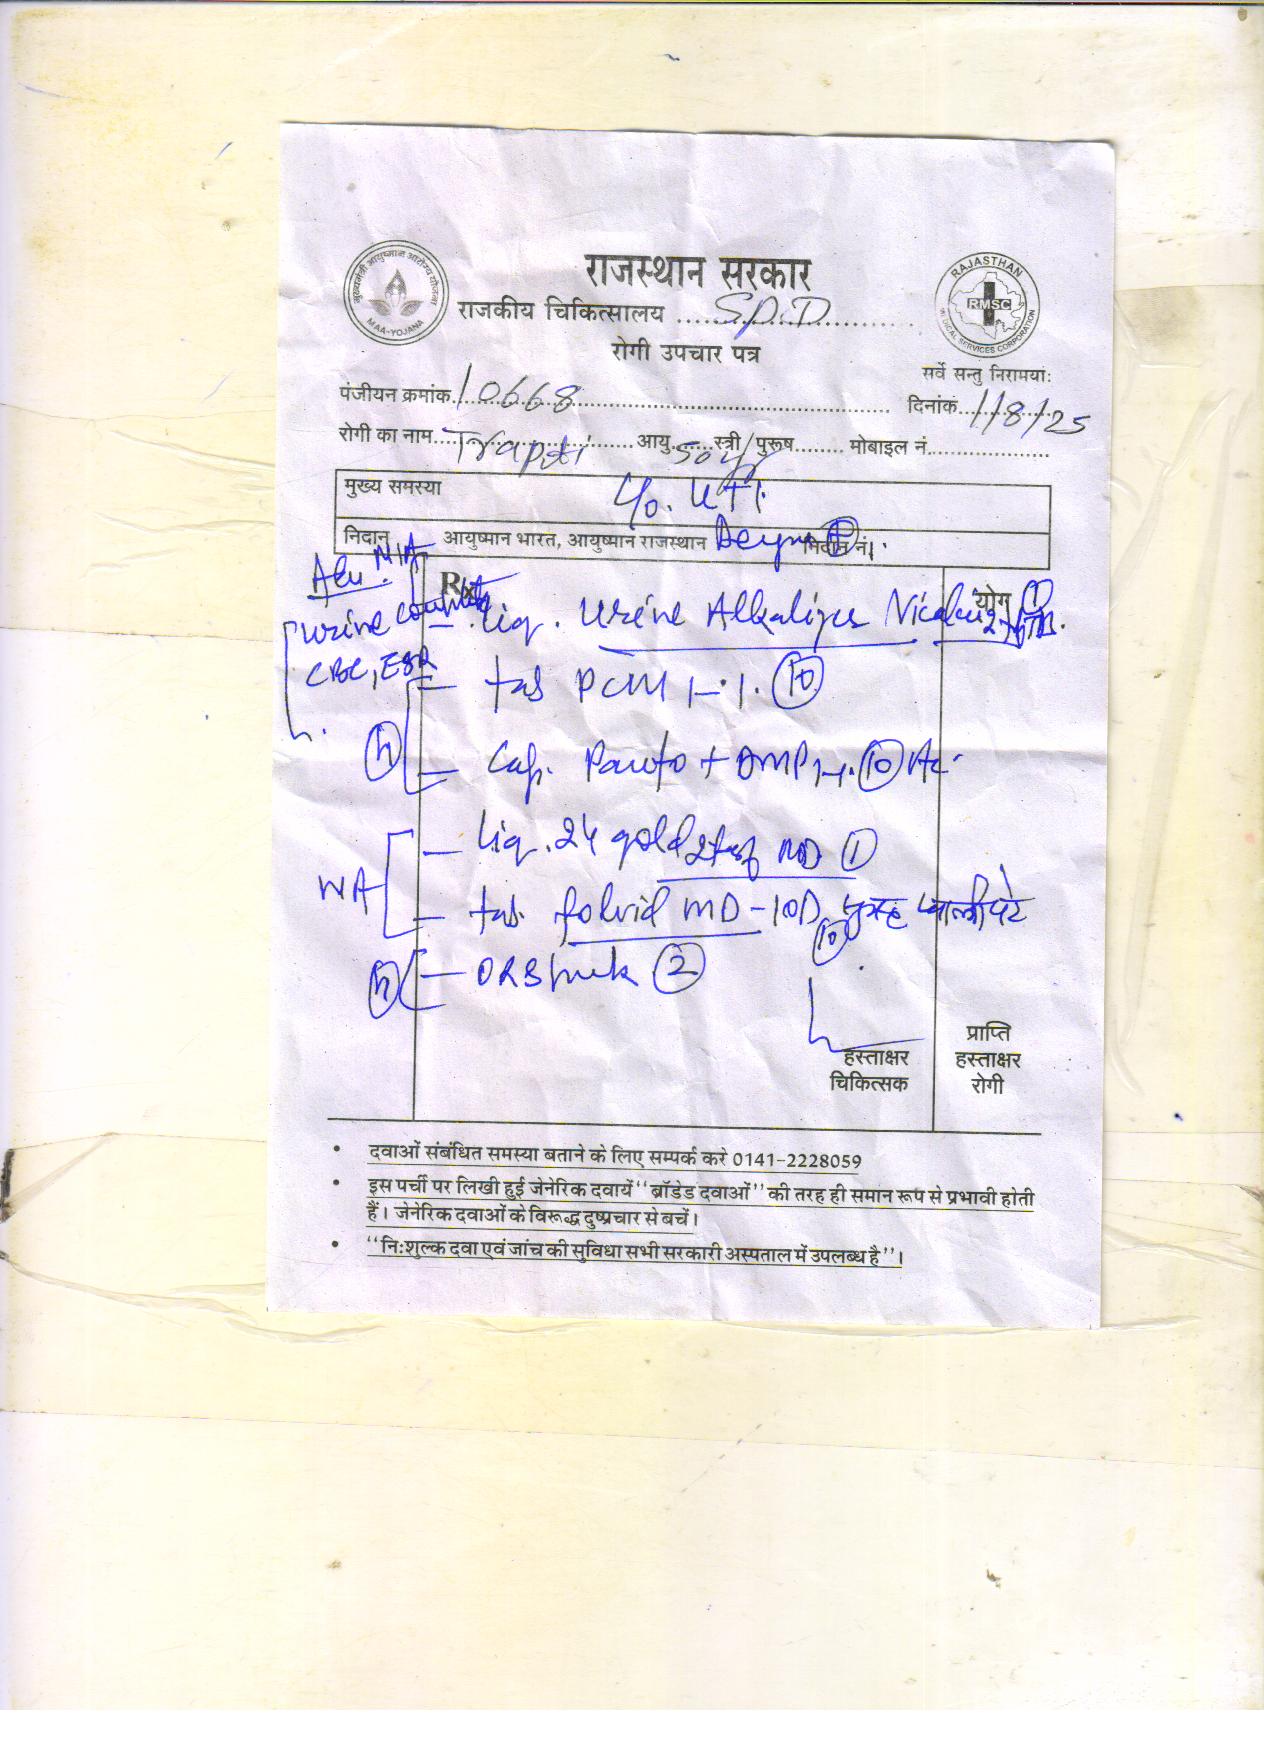 मुख्यमंत्री आयुष्मान आरोग्य योजना
MAA-YOJANA
राजस्थान सरकार
राजकीय चिकित्सालय ..... S.D.D .....
रोगी उपचार पत्र
RAJASTHAN
RMSC
MEDICAL SERVICES CORPORATION
सर्वे सन्तु निरामयाः
पंजीयन क्रमांक 10668 दिनांक 1/8/25
रोगी का नाम Trapti आयु 50y स्त्री/पुरूष मोबाइल नं.
मुख्य समस्या
c/o. UTI.
निदान आयुष्मान भारत, आयुष्मान राजस्थान निदान नं.
Rx योग
Urine complete
CBC, ESR
- liq. Urine Alkalizer 2tsf ①
- tab PCM 1-1. ⑩
- Cap. Panto + DMP 1-1. ⑩ Ac.
- liq. 24 gold 2tsf ①
NA
- tab. folvid MD-10D ⑩ खाली पेट
- ORS ②
हस्ताक्षर
चिकित्सक
प्राप्ति
हस्ताक्षर
रोगी
• दवाओं संबंधित समस्या बताने के लिए सम्पर्क करे 0141-2228059
• इस पर्ची पर लिखी हुई जेनेरिक दवायें "ब्रॉडेड दवाओं" की तरह ही समान रूप से प्रभावी होती
हैं। जेनेरिक दवाओं के विरूद्ध दुष्प्रचार से बचें।
• "निःशुल्क दवा एवं जांच की सुविधा सभी सरकारी अस्पताल में उपलब्ध है"।